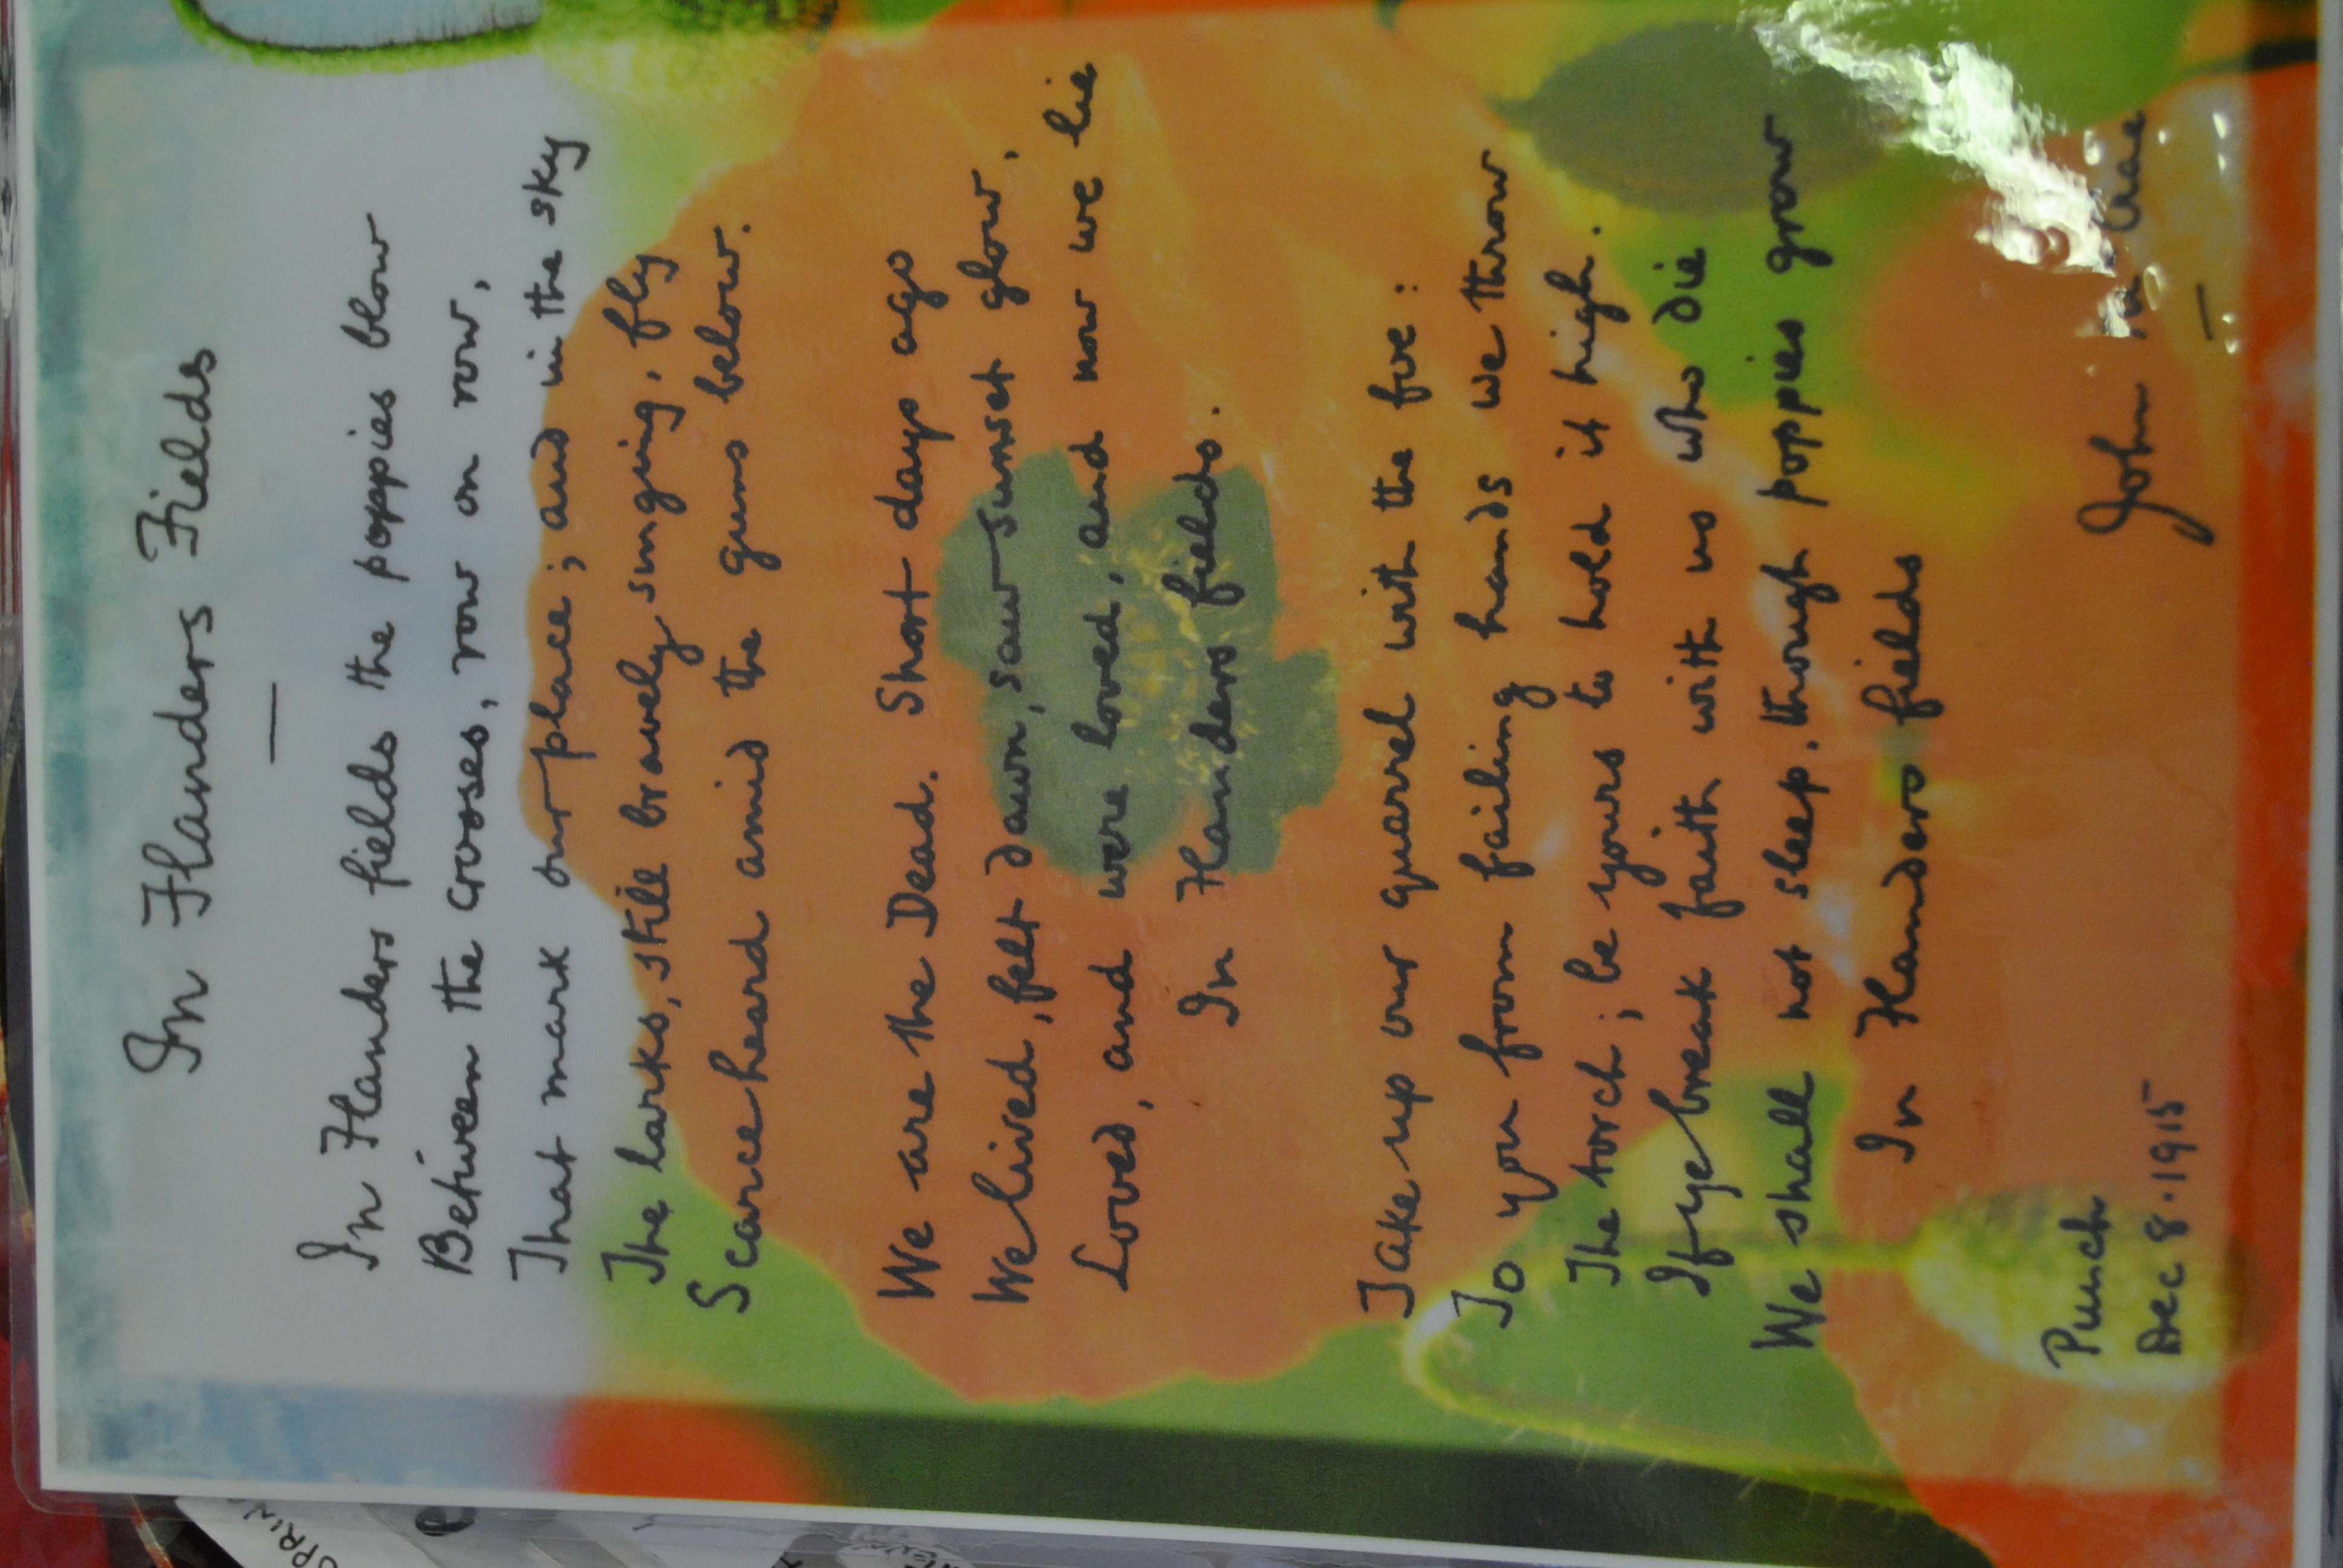 In Flanders Fields
In Flanders fields the poppies blow
Between the crosses, row on row,
That mark our place; and in the sky
The larks, still bravely singing, fly
Scarce heard amid the guns below.
We are the Dead. Short days ago
We lived, felt dawn, saw sunset glow,
Loved, and were loved, and now we lie
In Flanders fields.
Take up our quarrel with the foe:
To you from failing hands we throw
The torch; be yours to hold it high.
If ye break faith with us who die
We shall not sleep, though poppies grow
In Flanders fields
Punch
Dec 8·1915
John
SPRIN